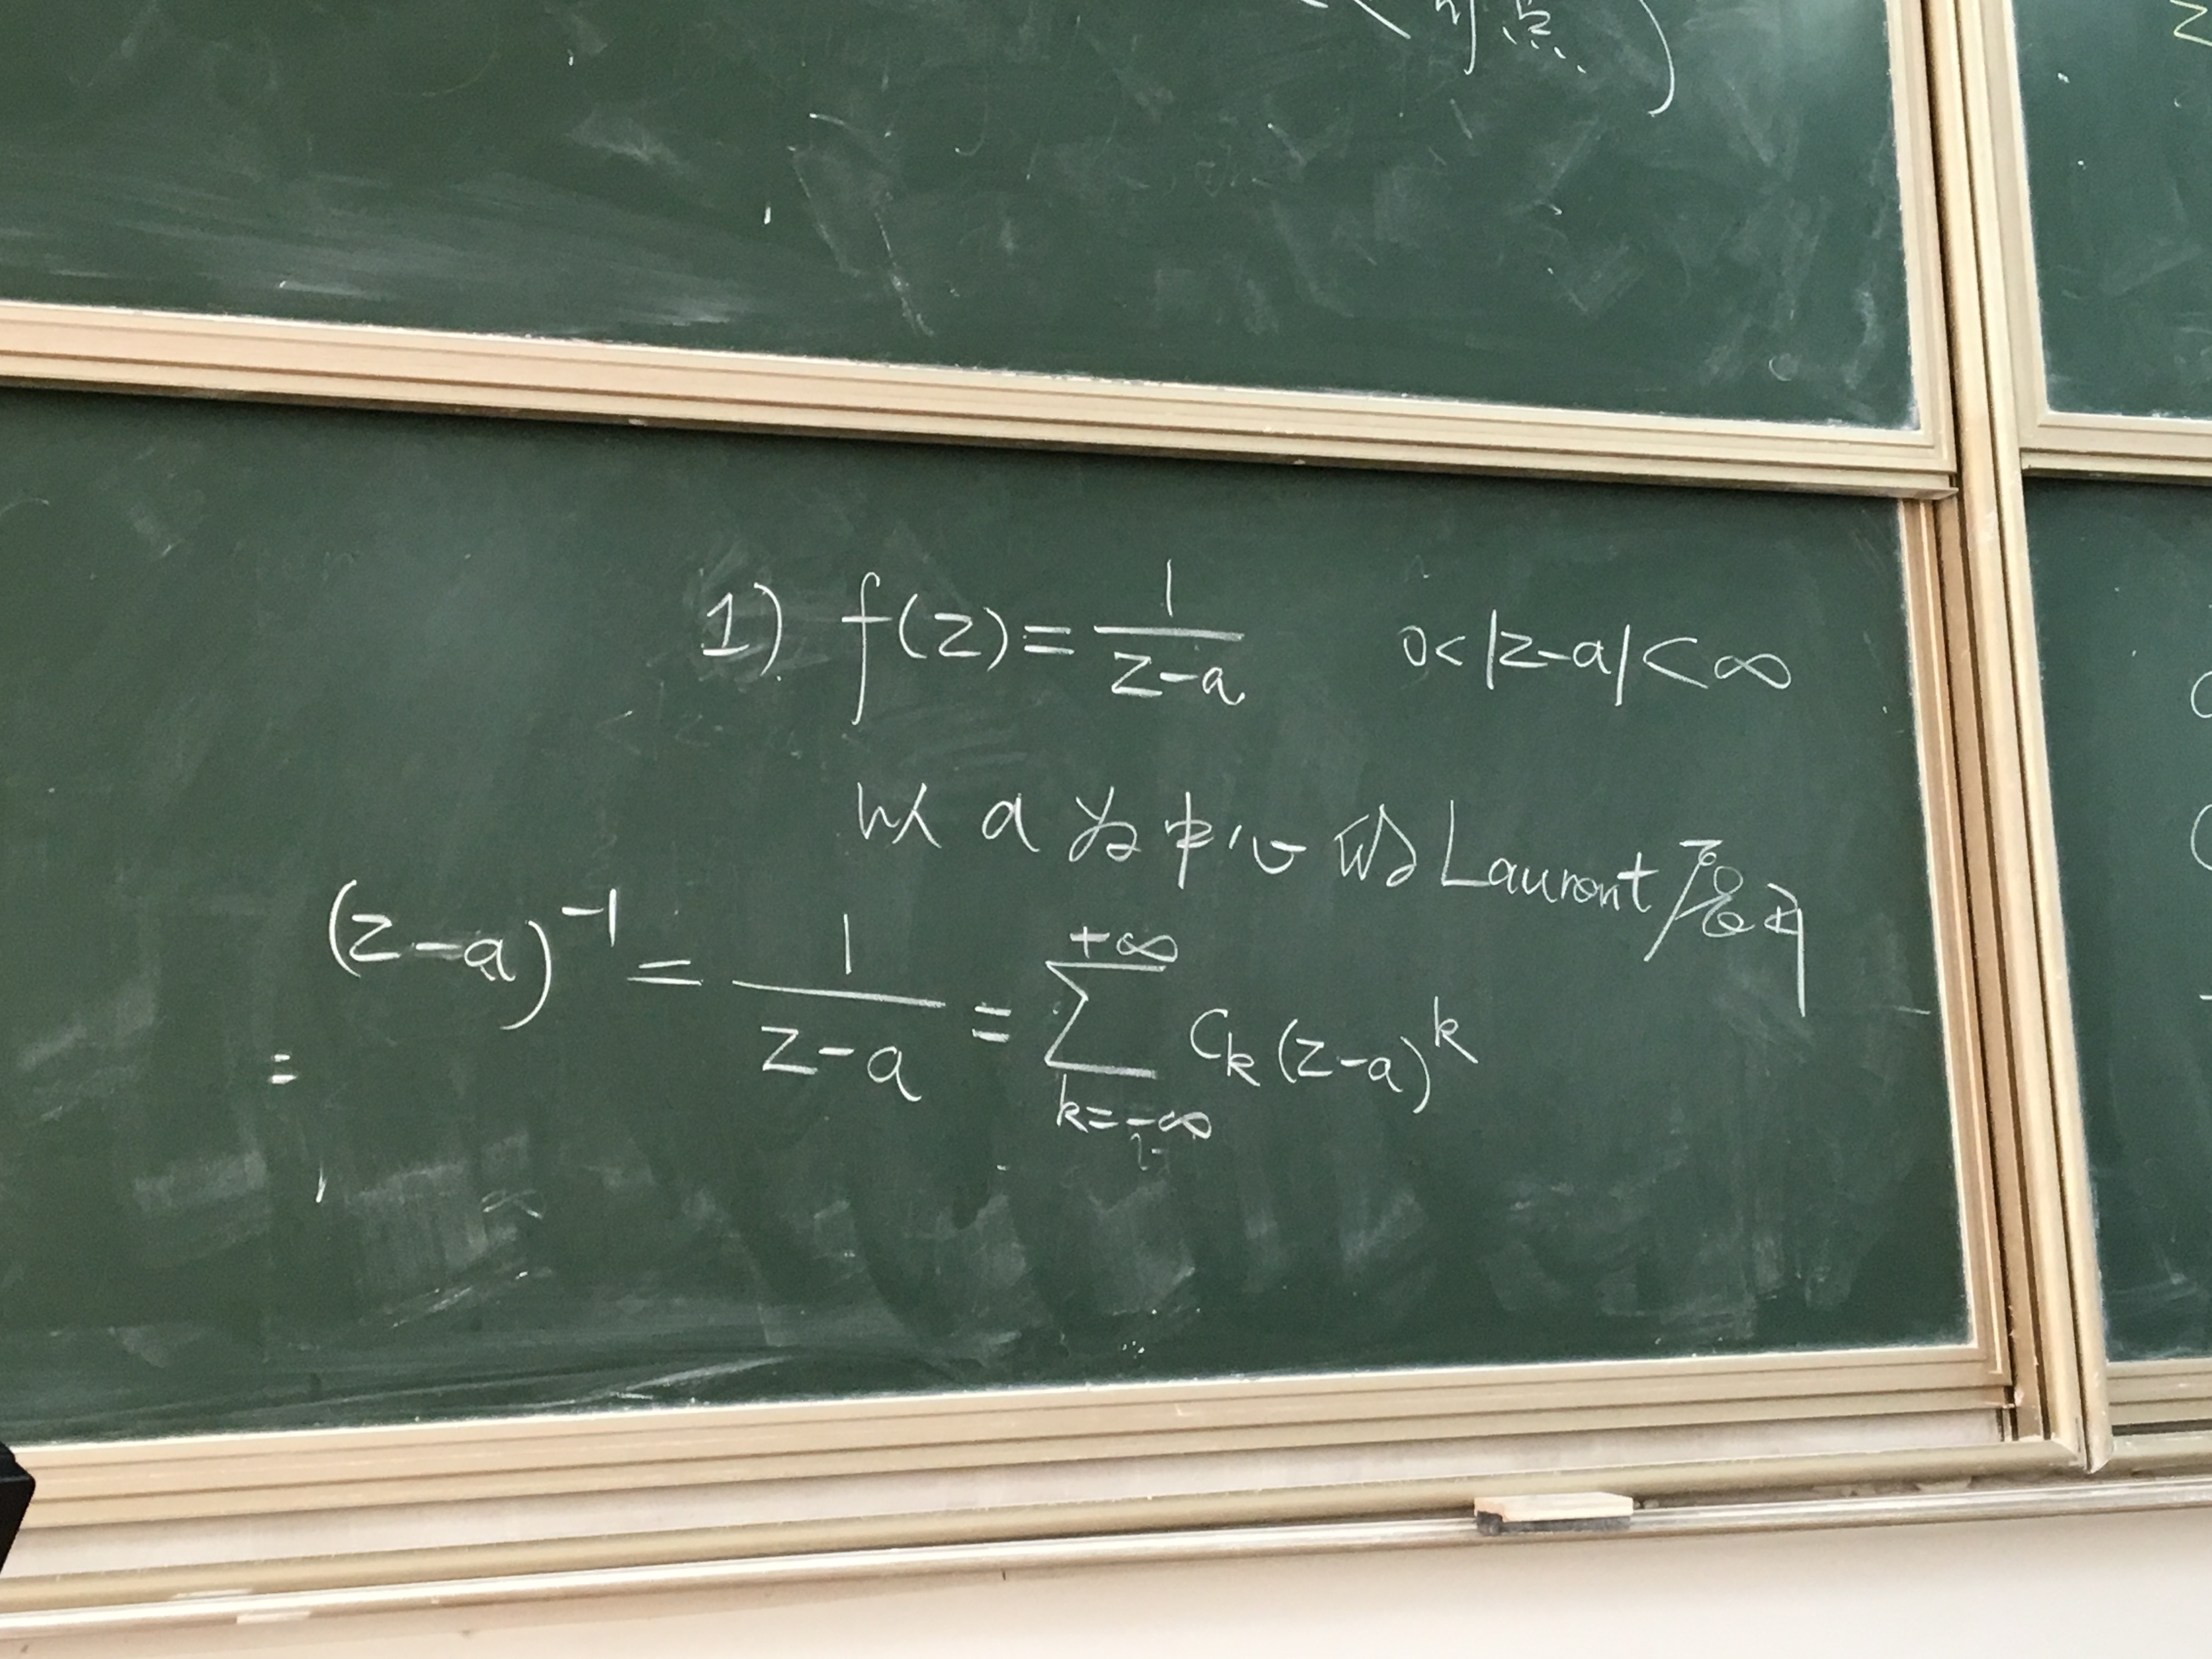 点)
1) f(z) = 1/(z-a) 0<|z-a|<∞
以 a 为中心的Laurent展开
(z-a)^{-1} = 1/(z-a) = \sum_{k=-∞}^{+∞} C_k (z-a)^k
=